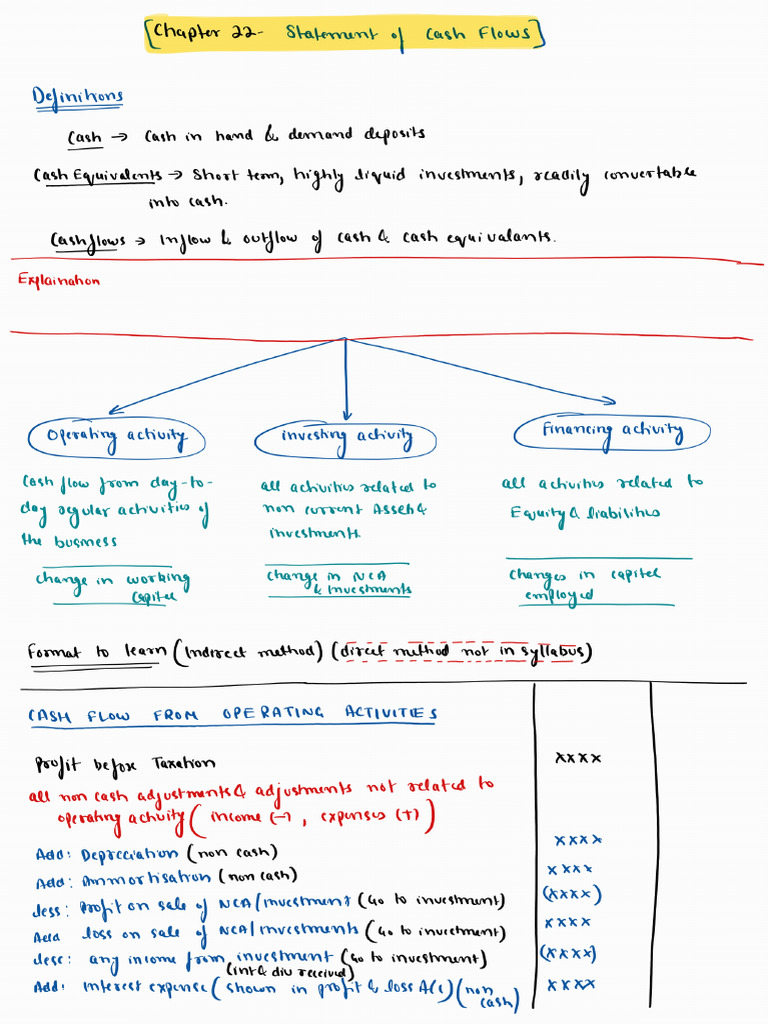 [Chapter 22- Statement of Cash Flows]
Definitions
Cash → Cash in hand & demand deposits
Cash Equivalents → Short term, highly liquid investments, readily convertable
into cash.
Cashflows → Inflow & outflow of cash & cash equivalants.
Explaination
Operating activity
investing activity
Financing activity
Cash flow from day-to-
day regular activities of
the business
all activities related to
non current Asset &
investments
all activities related to
Equity & liabilities
change in working
capital
change in NCA
& Investments
changes in capital
employed
Format to learn (Indirect method) (direct method not in syllabus)
CASH FLOW FROM OPERATING ACTIVITIES
Profit before Taxation xxxx
all non cash adjustments & adjustments not related to
operating activity (income (-), expenses (+))
Add: Depreciation (non cash) xxxx
Add: Ammortisation (non cash) xxxx
less: Profit on sale of NCA/investment (Go to investment) (xxxx)
Add loss on sale of NCA/investments (Go to investment) xxxx
less: any income from investment (Go to investment) (xxxx)
(int & div received)
Add: interest expense (shown in profit & loss A/C) (non cash) xxxx